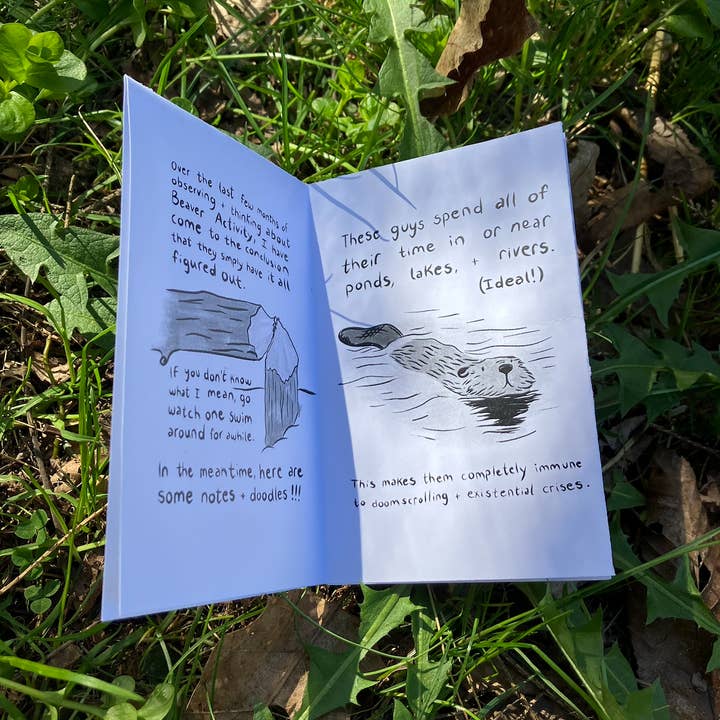 Over the last few months of
observing + thinking about
Beaver Activity, I have
come to the conclusion
that they simply have it all
figured out.
If you don't know
what I mean, go
watch one swim
around for awhile.
In the meantime, here are
some notes + doodles!!!
These guys spend all of
their time in or near
ponds, lakes, + rivers.
(Ideal!)
This makes them completely immune
to doomscrolling + existential crises.